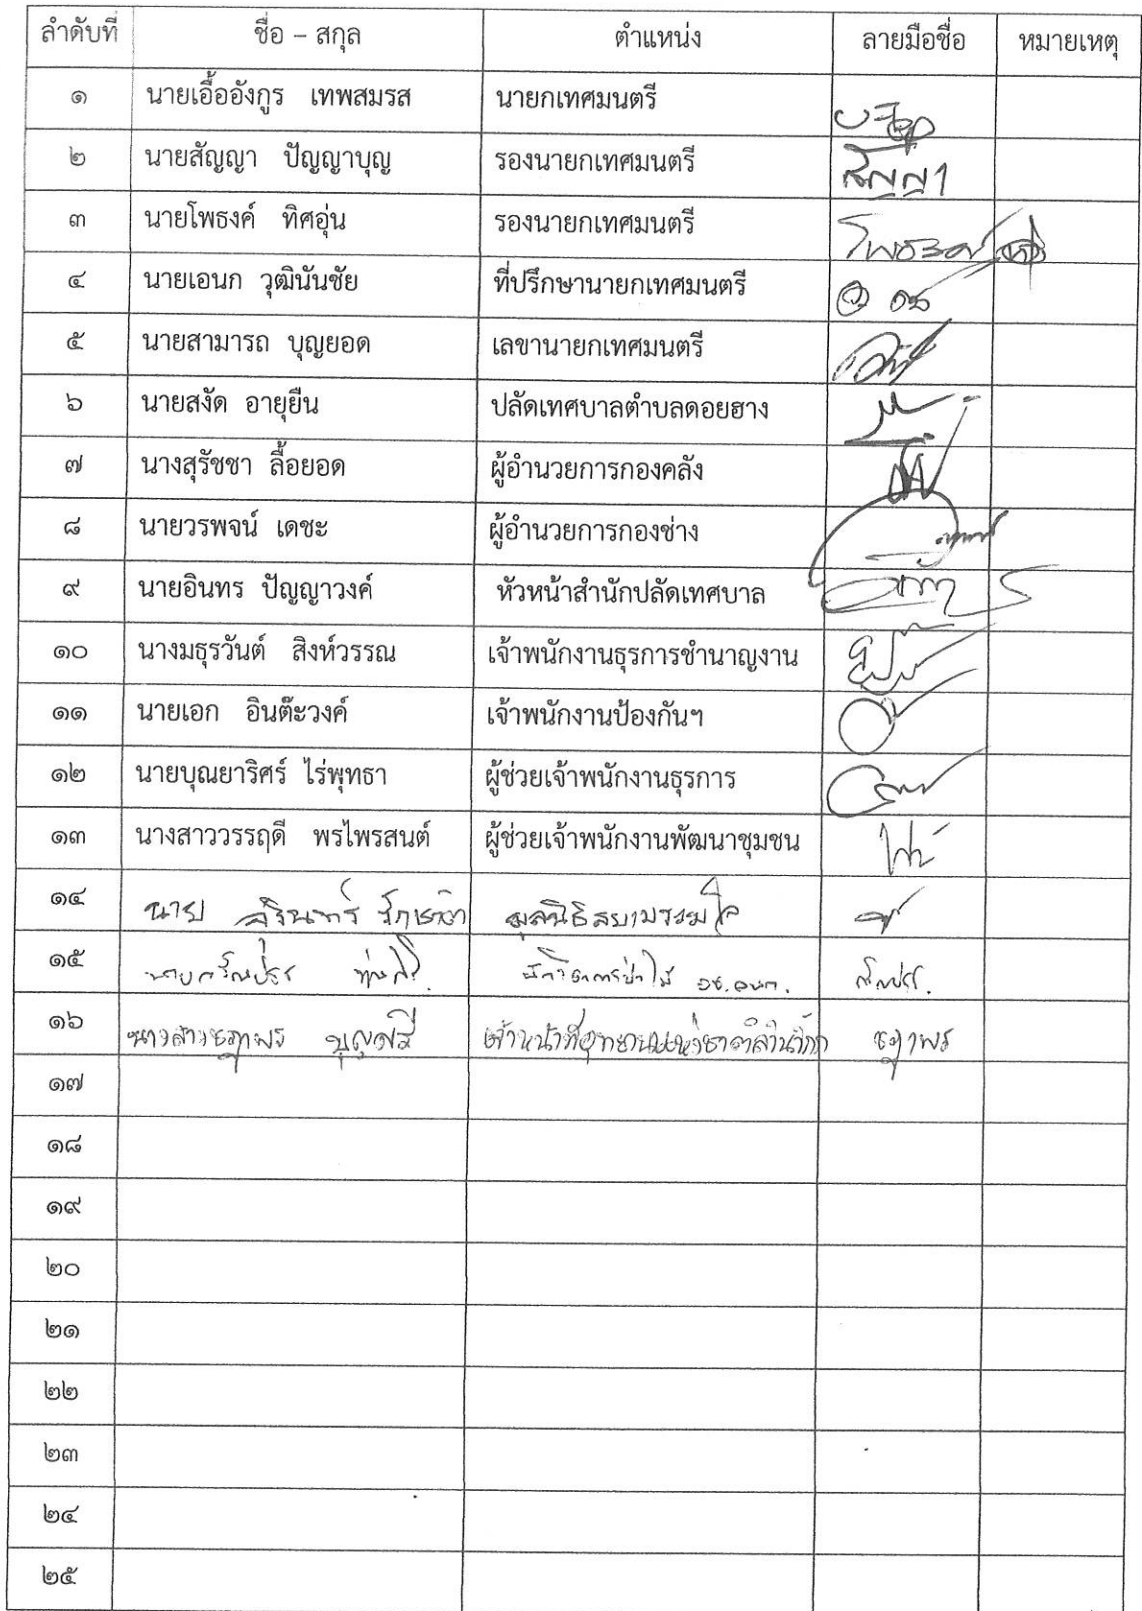 ลำดับที่ ชื่อ – สกุล ตำแหน่ง ลายมือชื่อ หมายเหตุ
๑ นายเอื้ออังกูร เทพสมรส นายกเทศมนตรี
๒ นายสัญญา ปัญญาบุญ รองนายกเทศมนตรี สัญญา
๓ นายโพธงค์ ทิศอุ่น รองนายกเทศมนตรี โพธงค์
๔ นายเอนก วุฒินันชัย ที่ปรึกษานายกเทศมนตรี
๕ นายสามารถ บุญยอด เลขานายกเทศมนตรี
๖ นายสงัด อายุยืน ปลัดเทศบาลตำบลดอยฮาง
๗ นางสุรัชชา ลื้อยอด ผู้อำนวยการกองคลัง
๘ นายวรพจน์ เดชะ ผู้อำนวยการกองช่าง
๙ นายอินทร ปัญญาวงค์ หัวหน้าสำนักปลัดเทศบาล
๑๐ นางมธุรวันต์ สิงห์วรรณ เจ้าพนักงานธุรการชำนาญงาน
๑๑ นายเอก อินต๊ะวงค์ เจ้าพนักงานป้องกันฯ
๑๒ นายบุณยาริศร์ ไร่พุทธา ผู้ช่วยเจ้าพนักงานธุรการ
๑๓ นางสาววรรฤดี พรไพรสนต์ ผู้ช่วยเจ้าพนักงานพัฒนาชุมชน
๑๔ นาย มูลนิธิสยามรวมใจ
๑๕ นาย นักวิชาการป่าไม้
๑๖ นางสาวชฎาพร บุญศรี เจ้าหน้าที่อุทยานแห่งชาติลำน้ำกก ชฎาพร
๑๗
๑๘
๑๙
๒๐
๒๑
๒๒
๒๓
๒๔
๒๕